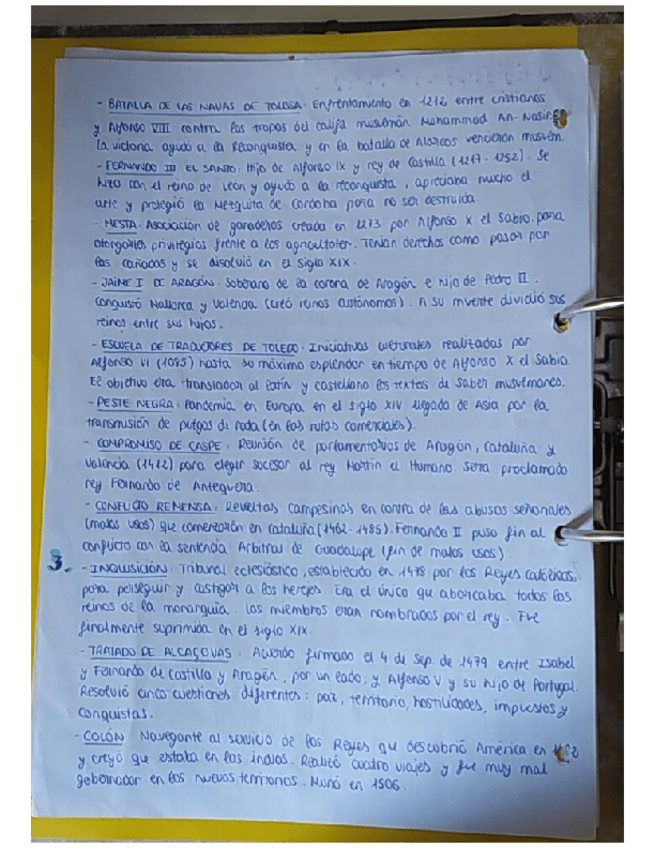 - BATALLA DE LAS NAVAS DE TOLOSA: Enfrentamiento en 1212 entre cristianos
y Alfonso VIII contra las tropas del califa musulmán Mohammad An-Nasir
La victoria ayudó a la Reconquista y en la batalla de Alarcos vencieron musulm.
- FERNANDO III EL SANTO: Hijo de Alfonso IX y rey de Castilla (1217-1252). Se
hizo con el reino de León y ayudó a la reconquista, apreciaba mucho el
arte y protegió la Mezquita de Cordoba para no ser destruida.
- MESTA: Asociación de ganaderos creada en 1273 por Alfonso X el Sabio para
otorgarles privilegios frente a los agricultores. Tenían derechos como pasar por
las cañadas y se disolvió en el siglo XIX.
- JAIME I DE ARAGÓN: Soberano de la corona de Aragón e hijo de Pedro II.
Conquistó Mallorca y Valencia (creó reinos autónomos). A su muerte dividió sus
reinos entre sus hijos.
- ESCUELA DE TRADUCTORES DE TOLEDO: Iniciativas culturales realizadas por
Alfonso VI (1085) hasta su máximo esplendor en tiempo de Alfonso X el Sabio.
El objetivo era translador al latín y castellano los textos de saber musulmanes.
- PESTE NEGRA: Pandemia en Europa en el siglo XIV llegada de Asia por la
transmusión de pulgas de rata (en las rutas comerciales).
- COMPROMISO DE CASPE: Reunión de parlamentarios de Aragón, Cataluña y
Valencia (1412) para elegir sucesor al rey Martín el Humano. Sería proclamado
rey Fernando de Antequera.
- CONFLICTO REMENSA: Revueltas campesinas en contra de los abusos señoriales
(malos usos) que comenzarón en Cataluña (1462-1485). Fernando II puso fin al
conflicto con la sentencia Arbitral de Guadalupe (fin de malos usos).
3. - INQUISICIÓN: Tribunal eclesiástico, establecido en 1478 por los Reyes católicos,
para perseguir y castigar a los herejes. Era el único que abarcaba todos los
reinos de la monarquía. Los miembros eran nombrados por el rey. Fue
finalmente suprimida en el siglo XIX.
- TRATADO DE ALCAÇOVAS: Acuerdo firmado el 4 de Sep. de 1479 entre Isabel
y Fernando de Castilla y Aragón, por un lado, y Alfonso V y su hijo de Portugal.
Resolvió cinco cuestiones diferentes: paz, territorio, hostilidades, impuestos y
conquistas.
- COLÓN: Navegante al servicio de los Reyes que descubrió América en
y creyó que estaba en las indias. Realizó cuatro viajes y fue muy mal
gobernador en los nuevos territorios. Murió en 1506.